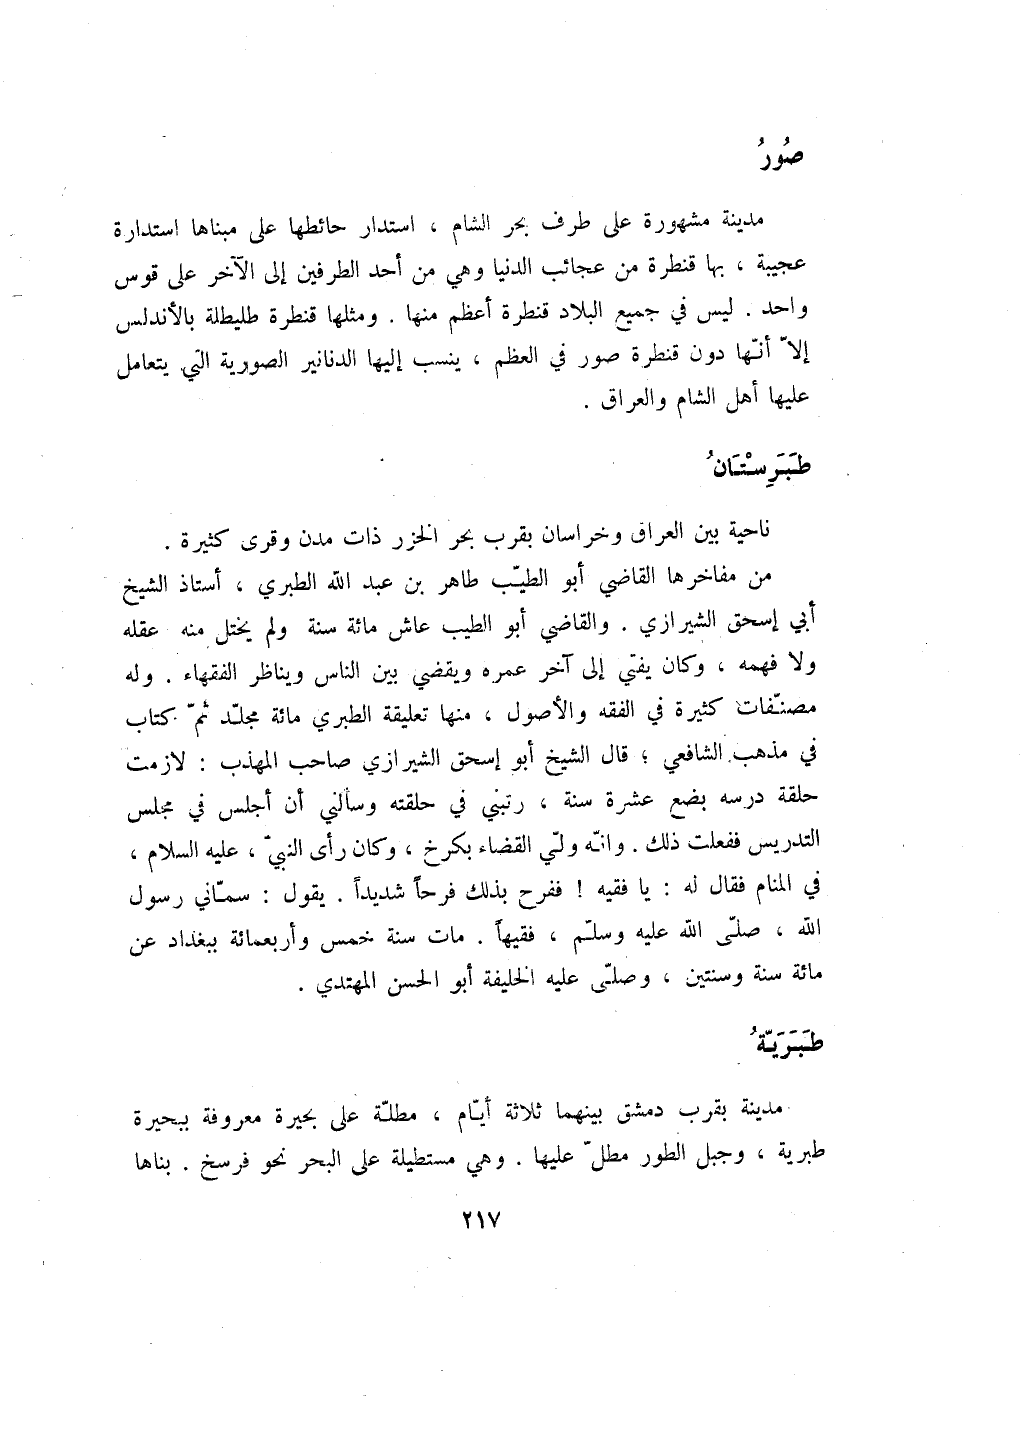 صُورُ
مدينة مشهورة على طرف بحر الشام ، استدار حائطها على مبناها استدارة
عجيبة ، بها قنطرة من عجائب الدنيا وهي من أحد الطرفين إلى الآخر على قوس
واحد . ليس في جميع البلاد قنطرة أعظم منها . ومثلها قنطرة طليطلة بالأندلس
إلاّ أنّها دون قنطرة صور في العظم ، ينسب إليها الدنانير الصورية التي يتعامل
عليها أهل الشام والعراق .
طَبَرِسْتَانُ
ناحية بين العراق وخراسان بقرب بحر الخزر ذات مدن وقرى كثيرة .
من مفاخرها القاضي أبو الطيّب طاهر بن عبد الله الطبري ، أستاذ الشيخ
أبي إسحق الشيرازي . والقاضي أبو الطيب عاش مائة سنة ولم يختل منه عقله
ولا فهمه ، وكان يفتي إلى آخر عمره ويقضي بين الناس ويناظر الفقهاء . وله
مصنّفات كثيرة في الفقه والأصول ، منها تعليقة الطبري مائة مجلّد ثمّ كتاب
في مذهب الشافعي ؛ قال الشيخ أبو إسحق الشيرازي صاحب المهذب : لازمت
حلقة درسه بضع عشرة سنة ، رتبني في حلقته وسألني أن أجلس في مجلس
التدريس ففعلت ذلك . وانّه ولّي القضاء بكرخ ، وكان رأى النبيّ ، عليه السلام ،
في المنام فقال له : يا فقيه ! ففرح بذلك فرحاً شديداً . يقول : سمّاني رسول
الله ، صلّى الله عليه وسلّم ، فقيهاً . مات سنة خمس وأربعمائة ببغداد عن
مائة سنة وسنتين ، وصلّى عليه الخليفة أبو الحسن المهتدي .
طَبَرَيّةُ
مدينة بقرب دمشق بينهما ثلاثة أيّام ، مطلّة على بحيرة معروفة ببحيرة
طبرية ، وجبل الطور مطلّ عليها . وهي مستطيلة على البحر نحو فرسخ . بناها
٢١٧